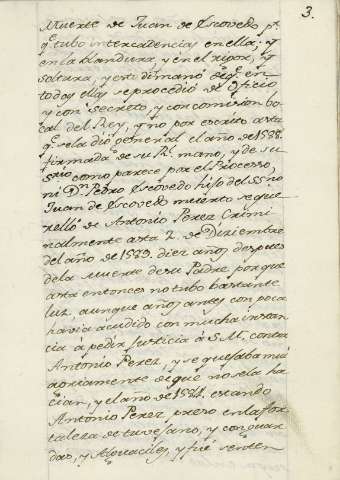 3.
Muerte de Juan de Escovedo, pr.
q.e tubo intercadencias en ella; y
en la blandura, y en el rigor, y
soltura, y esto dimanó de q.e en
todas ellas se procedió de Oficio
y con secreto, y con comision bo-
cal del Rey, q.e no por escrito asta
q.e se la dió general el año de 1588.
firmada de su R.l mano, y de su
como parece por el Processo,
ni D.n Pedro Escovedo hijo del SS.rio
Juan de Escovedo muerto se que-
relló de Antonio Perez Crimi-
nalmente asta 2. de Diziembre
del año de 1589. diez años despues
dela muerte de su Padre porque
asta entonces no tubo bastante
luz, aunque años antes con poca
havia acudido con mucha instan-
cia á pedir Justicia á S. M. contra
Antonio Perez, y se quejaba mui
agriamente de que no se la ha-
cian, y el año de 1584. estando
Antonio Perez preso en la for-
taleza de Turuesano, y con guar-
das, y Alguaciles, y fué senten